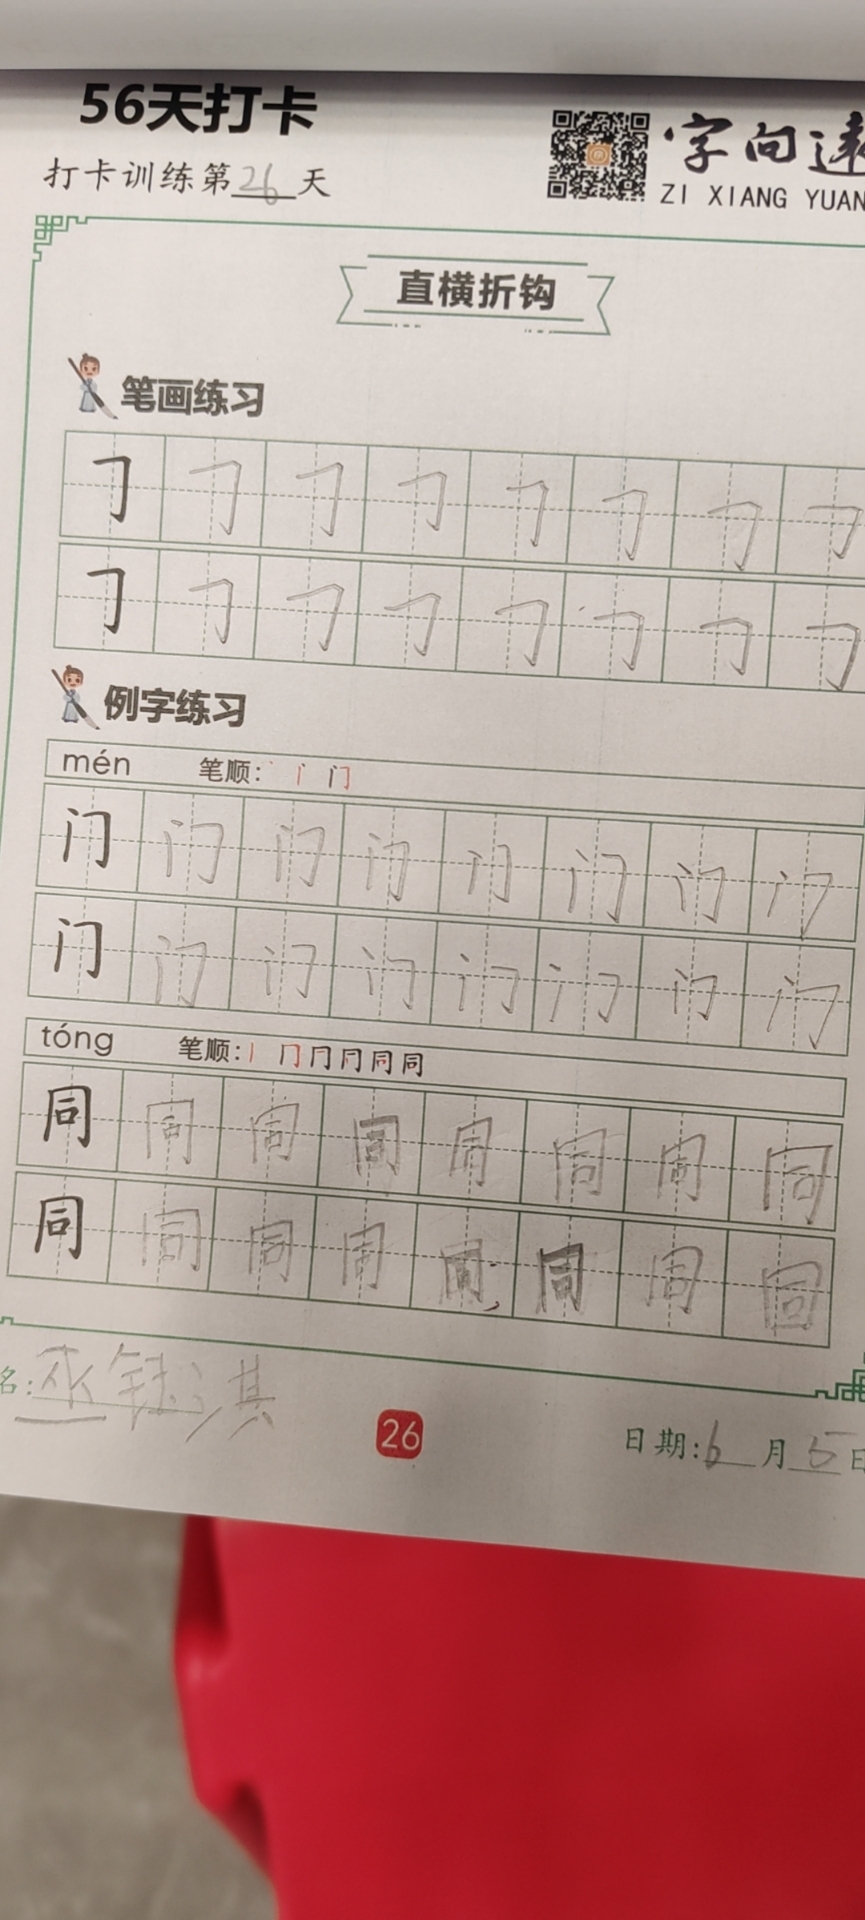 56天打卡
字向遠
打卡训练第26天
ZI XIANG YUAN
直横折钩
笔画练习
𠃌 𠃌 𠃌 𠃌 𠃌 𠃌 𠃌 𠃌
𠃌 𠃌 𠃌 𠃌 𠃌 𠃌 𠃌 𠃌
例字练习
mén 笔顺: 丶 门
门 门 门 门 门 门 门 门
门 门 门 门 门 门 门 门
tóng 笔顺: 丨 冂 同
同 同 同 同 同 同 同 同
同 同 同 同 同 同 同 同
名: 巫 淇
26
日期:6月5日